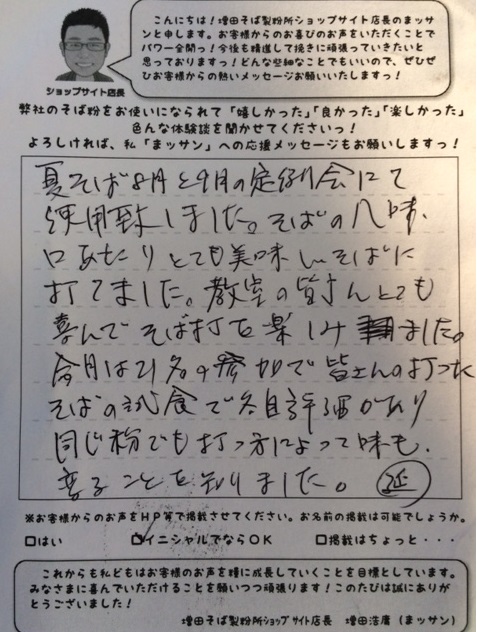 こんにちは！増田そば製粉所ショップサイト店長のまッサ
ンと申します。お客様からのお喜びのお声をいただくことで
パワー全開っ！今後も精進して挽きに頑張っていきたいと
思っておりますっ！どんな些細なことでもいいので、ぜひぜ
ひお客様からの熱いメッセージお願いいたしますっ！
ショップサイト店長
弊社のそば粉をお使いになられて「嬉しかった」「良かった」「楽しかった」
色んな体験談を聞かせてくださいっ！
よろしければ、私「まッサン」への応援メッセージもお願いしますっ！
夏そば8月と9月の定例会にて
使用致しました。そばの風味、
口あたりとても美味しいそばに
打てました。教室の皆さんとても
喜んでそば打を楽しみました。
今月は21名の参加で皆さんの打った
そばの試食で各自評価があり
同じ粉でも打つ方によって味も、
変ることを知りました。
※お客様からのお声をHP等で掲載させてください。お名前の掲載は可能でしょうか。
□はい ☑イニシャルでならOK □掲載はちょっと・・・
これからも私どもはお客様のお声を糧に成長していくことを目標としています。
みなさまに喜んでいただけることを願いつつ頑張ります！このたびは誠にありが
とうございました！
増田そば製粉所ショップサイト店長 増田浩庸（まッサン）